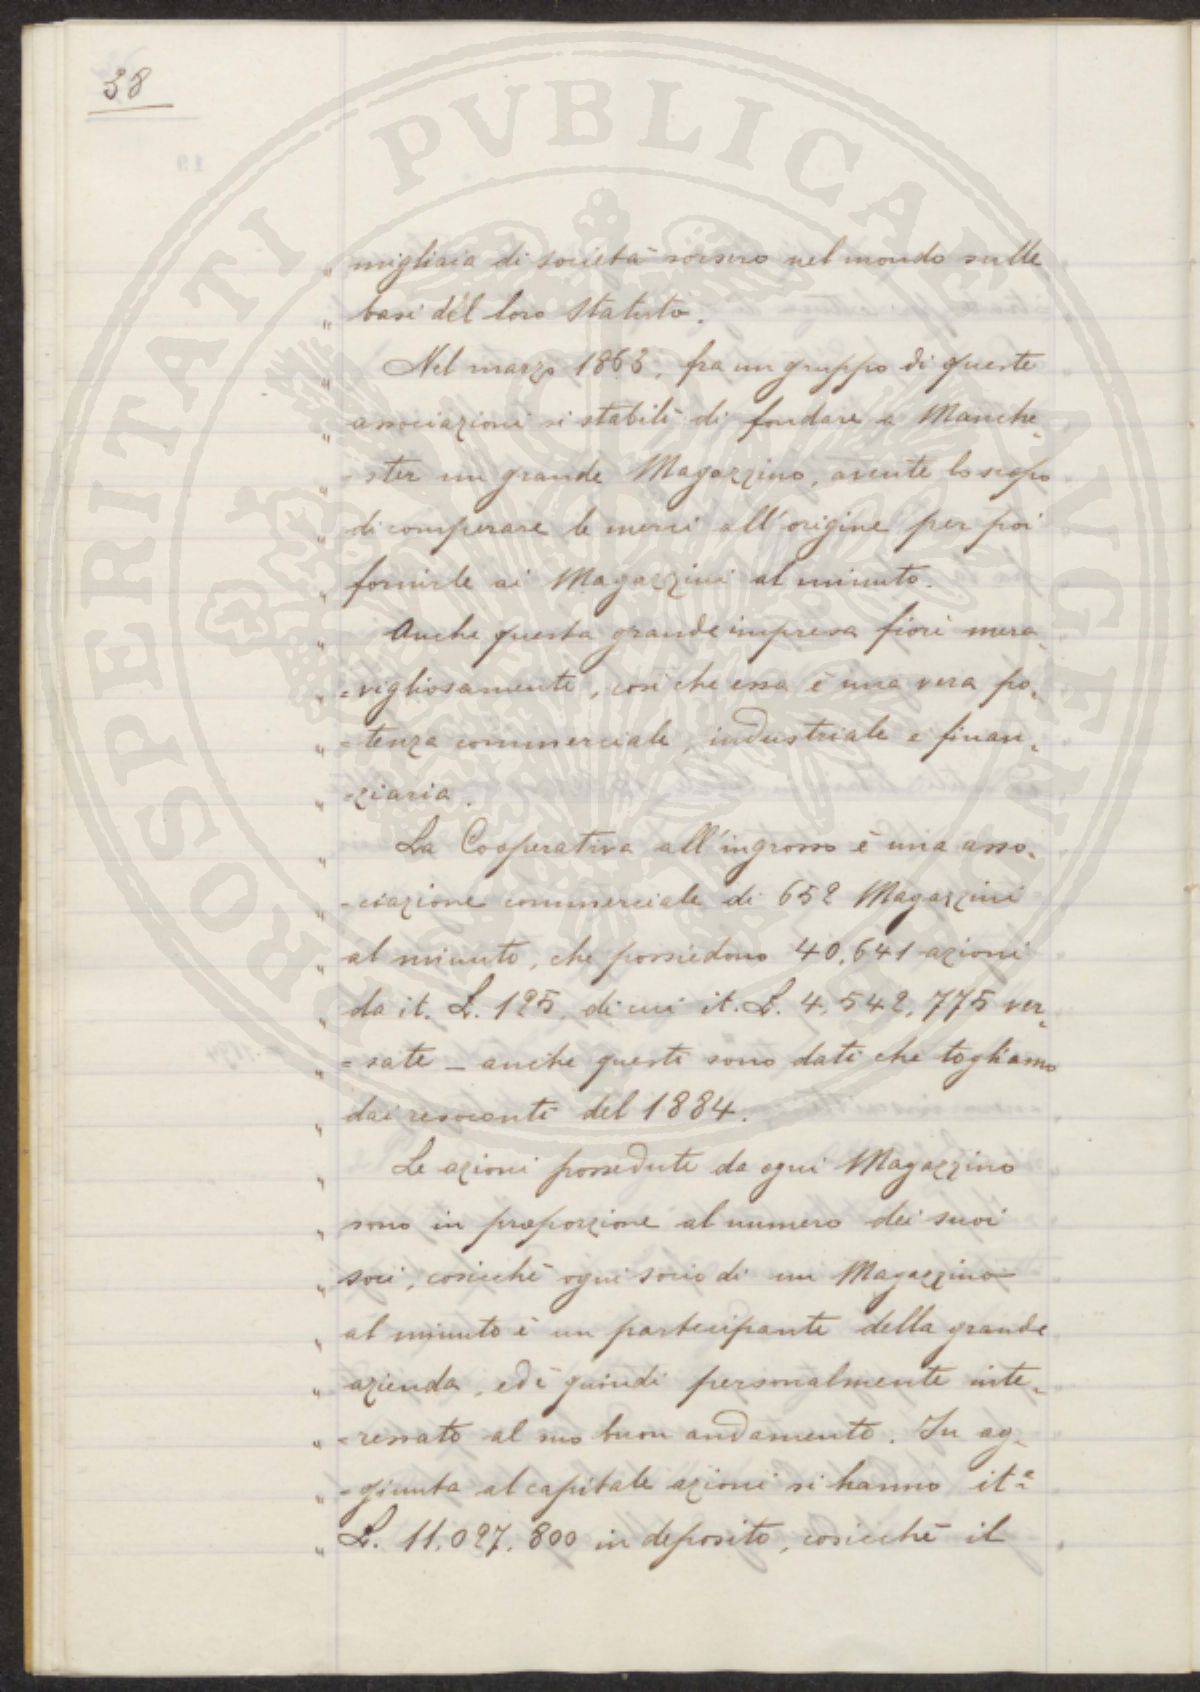 38
" migliaia di società sorsero nel mondo sulle
" basi del loro Statuto.
" Nel marzo 1863, fra un gruppo di queste
" associazioni si stabilì di fondare a Manche„
" -ster un grande Magazzino, avente lo scopo
" di comperare le merci all'origine per poi
" fornirle ai Magazzini al minuto.
" Anche questa grande impresa fiorì mera„
" =vigliosamente, così che essa è una vera po„
" =tenza commerciale, industriale e finan„
" =ziaria.
" La Cooperativa all'ingrosso è una asso„
" -ciazione commerciale di 652 Magazzini
" al minuto, che possiedono 40.641 azioni
" da it. L. 125, di cui it. L. 4,542,775 ver„
" =sate _ anche questi sono dati che togliamo
" dai resoconti del 1884.
" Le azioni possedute da ogni Magazzino
" sono in proporzione al numero dei suoi
" soci, cosicchè ogni socio di un Magazzino
" al minuto è un partecipante della grande
" azienda, ed è quindi personalmente inte„
" -ressato al suo buon andamento. In ag„
" -giunta al capitale azioni si hanno it.e
" L. 11.027.800 in deposito, cosicchè il
PROSPERITATI PVBLICAE AVGENDAE